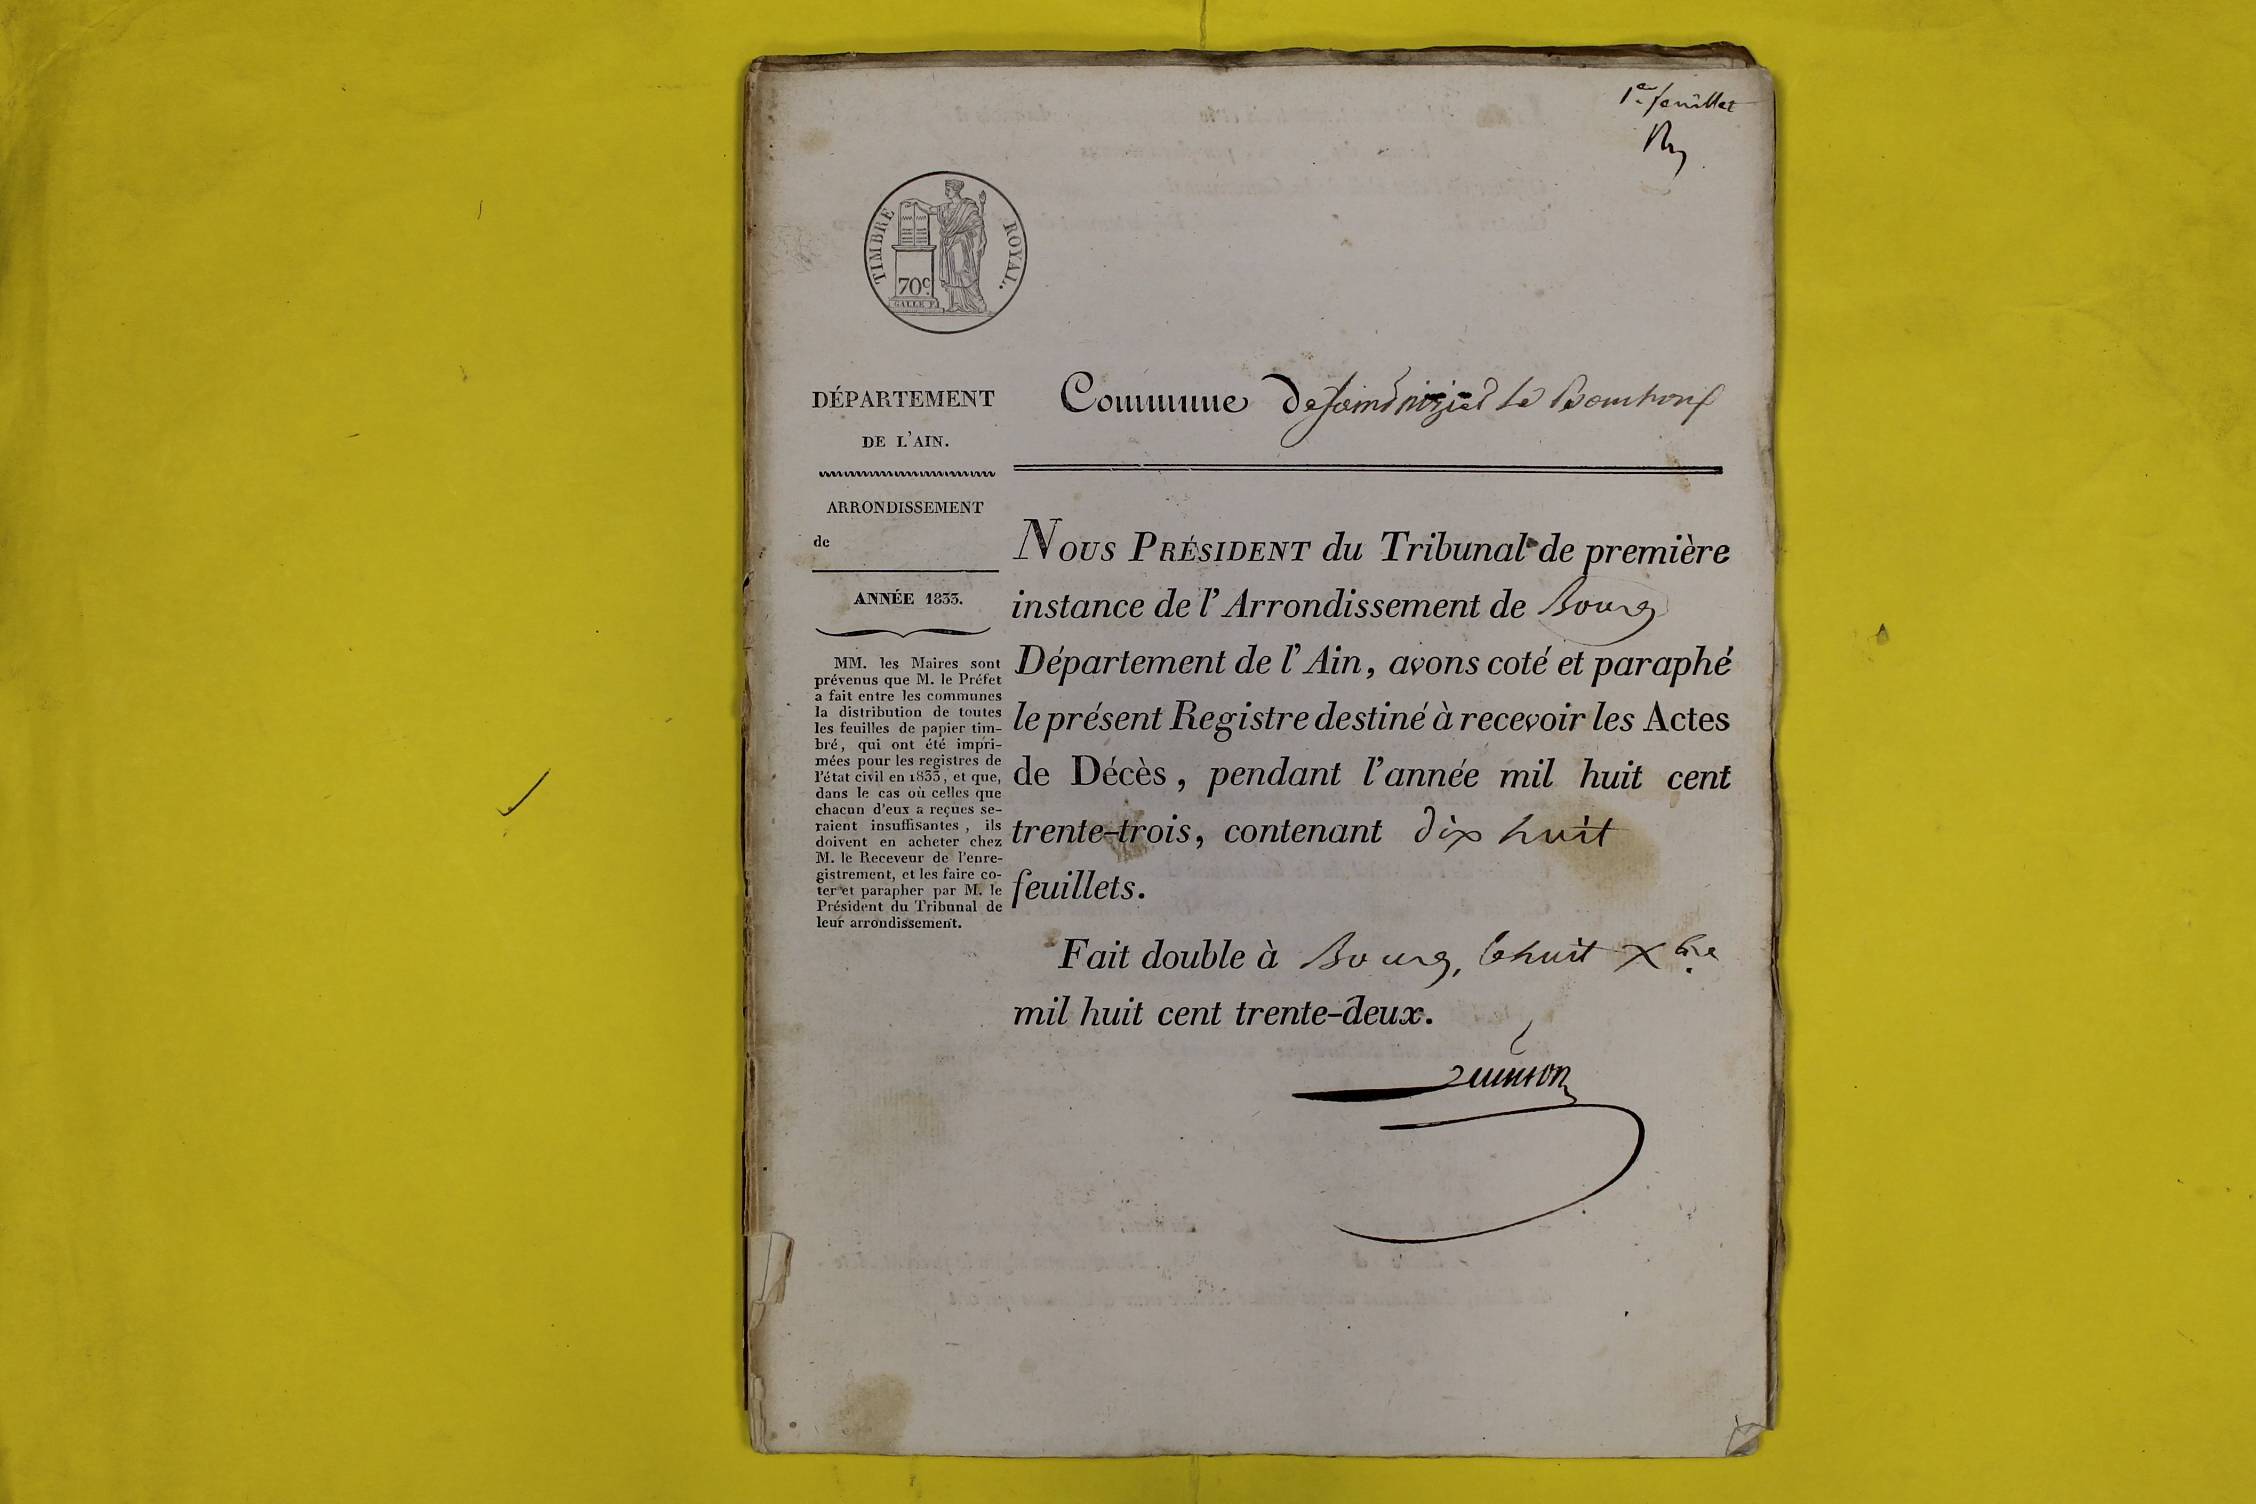 1er feuillet
TIMBRE ROYAL.
70c.
GALLE F.
DÉPARTEMENT
DE L'AIN.
Commune de Saint nizier Le Bouchoux
ARRONDISSEMENT
de
ANNÉE 1833.
MM. les Maires sont
prévenus que M. le Préfet
a fait entre les communes
la distribution de toutes
les feuilles de papier tim-
bré, qui ont été impri-
mées pour les registres de
l'état civil en 1833, et que,
dans le cas où celles que
chacun d'eux a reçues se-
raient insuffisantes, ils
doivent en acheter chez
M. le Receveur de l'enre-
gistrement, et les faire co-
ter et parapher par M. le
Président du Tribunal de
leur arrondissement.
NOUS PRÉSIDENT du Tribunal de première
instance de l'Arrondissement de Bourg
Département de l'Ain, avons coté et paraphé
le présent Registre destiné à recevoir les Actes
de Décès, pendant l'année mil huit cent
trente-trois, contenant dix huit
feuillets.
Fait double à Bourg, le huit Xbre
mil huit cent trente-deux.